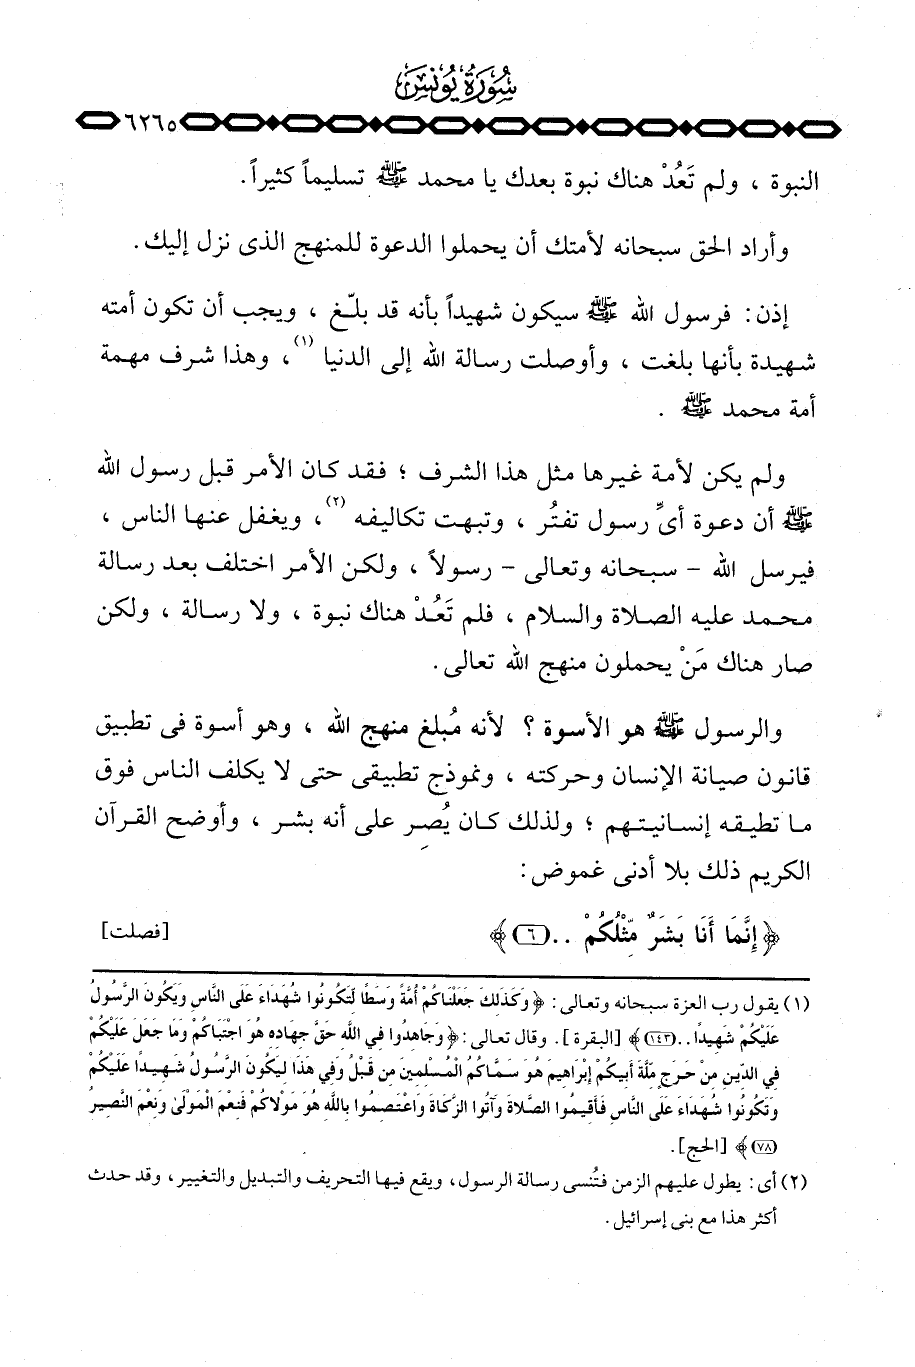 سُورَةُ يُونُسَ
٦٢٦٥
النبوة ، ولم تَعُدْ هناك نبوة بعدك يا محمد ﷺ تسليماً كثيراً.
وأراد الحق سبحانه لأمتك أن يحملوا الدعوة للمنهج الذى نزل إليك.
إذن: فرسول الله ﷺ سيكون شهيداً بأنه قد بلّغ ، ويجب أن تكون أمته
شهيدة بأنها بلغت ، وأوصلت رسالة الله إلى الدنيا (١)، وهذا شرف مهمة
أمة محمد ﷺ .
ولم يكن لأمة غيرها مثل هذا الشرف ؛ فقد كان الأمر قبل رسول الله
ﷺ أن دعوة أىِّ رسول تفتُر ، وتبهت تكاليفه (٢)، ويغفل عنها الناس ،
فيرسل الله - سبحانه وتعالى - رسولاً ، ولكن الأمر اختلف بعد رسالة
محمد عليه الصلاة والسلام ، فلم تَعُدْ هناك نبوة ، ولا رسالة ، ولكن
صار هناك مَنْ يحملون منهج الله تعالى.
والرسول ﷺ هو الأسوة ؟ لأنه مُبلغ منهج الله ، وهو أسوة فى تطبيق
قانون صيانة الإنسان وحركته ، ونموذج تطبيقى حتى لا يكلف الناس فوق
ما تطيقه إنسانيتهم ؛ ولذلك كان يُصر على أنه بشر ، وأوضح القرآن
الكريم ذلك بلا أدنى غموض:
﴿ إِنَّمَا أَنَا بَشَرٌ مِّثْلُكُمْ .. (٦) ﴾ [فصلت]
(١) يقول رب العزة سبحانه وتعالى: ﴿ وَكَذَلِكَ جَعَلْنَاكُمْ أُمَّةً وَسَطًا لِّتَكُونُوا شُهَدَاءَ عَلَى النَّاسِ وَيَكُونَ الرَّسُولُ
عَلَيْكُمْ شَهِيدًا .. (١٤٣) ﴾ [البقرة]. وقال تعالى: ﴿ وَجَاهِدُوا فِي اللَّهِ حَقَّ جِهَادِهِ هُوَ اجْتَبَاكُمْ وَمَا جَعَلَ عَلَيْكُمْ
فِي الدِّينِ مِنْ حَرَجٍ مِّلَّةَ أَبِيكُمْ إِبْرَاهِيمَ هُوَ سَمَّاكُمُ الْمُسْلِمِينَ مِن قَبْلُ وَفِي هَذَا لِيَكُونَ الرَّسُولُ شَهِيدًا عَلَيْكُمْ
وَتَكُونُوا شُهَدَاءَ عَلَى النَّاسِ فَأَقِيمُوا الصَّلاةَ وَآتُوا الزَّكَاةَ وَاعْتَصِمُوا بِاللَّهِ هُوَ مَوْلاكُمْ فَنِعْمَ الْمَوْلَىٰ وَنِعْمَ النَّصِيرُ
(٧٨) ﴾ [الحج].
(٢) أى: يطول عليهم الزمن فتُنسى رسالة الرسول، ويقع فيها التحريف والتبديل والتغيير، وقد حدث
أكثر هذا مع بنى إسرائيل.